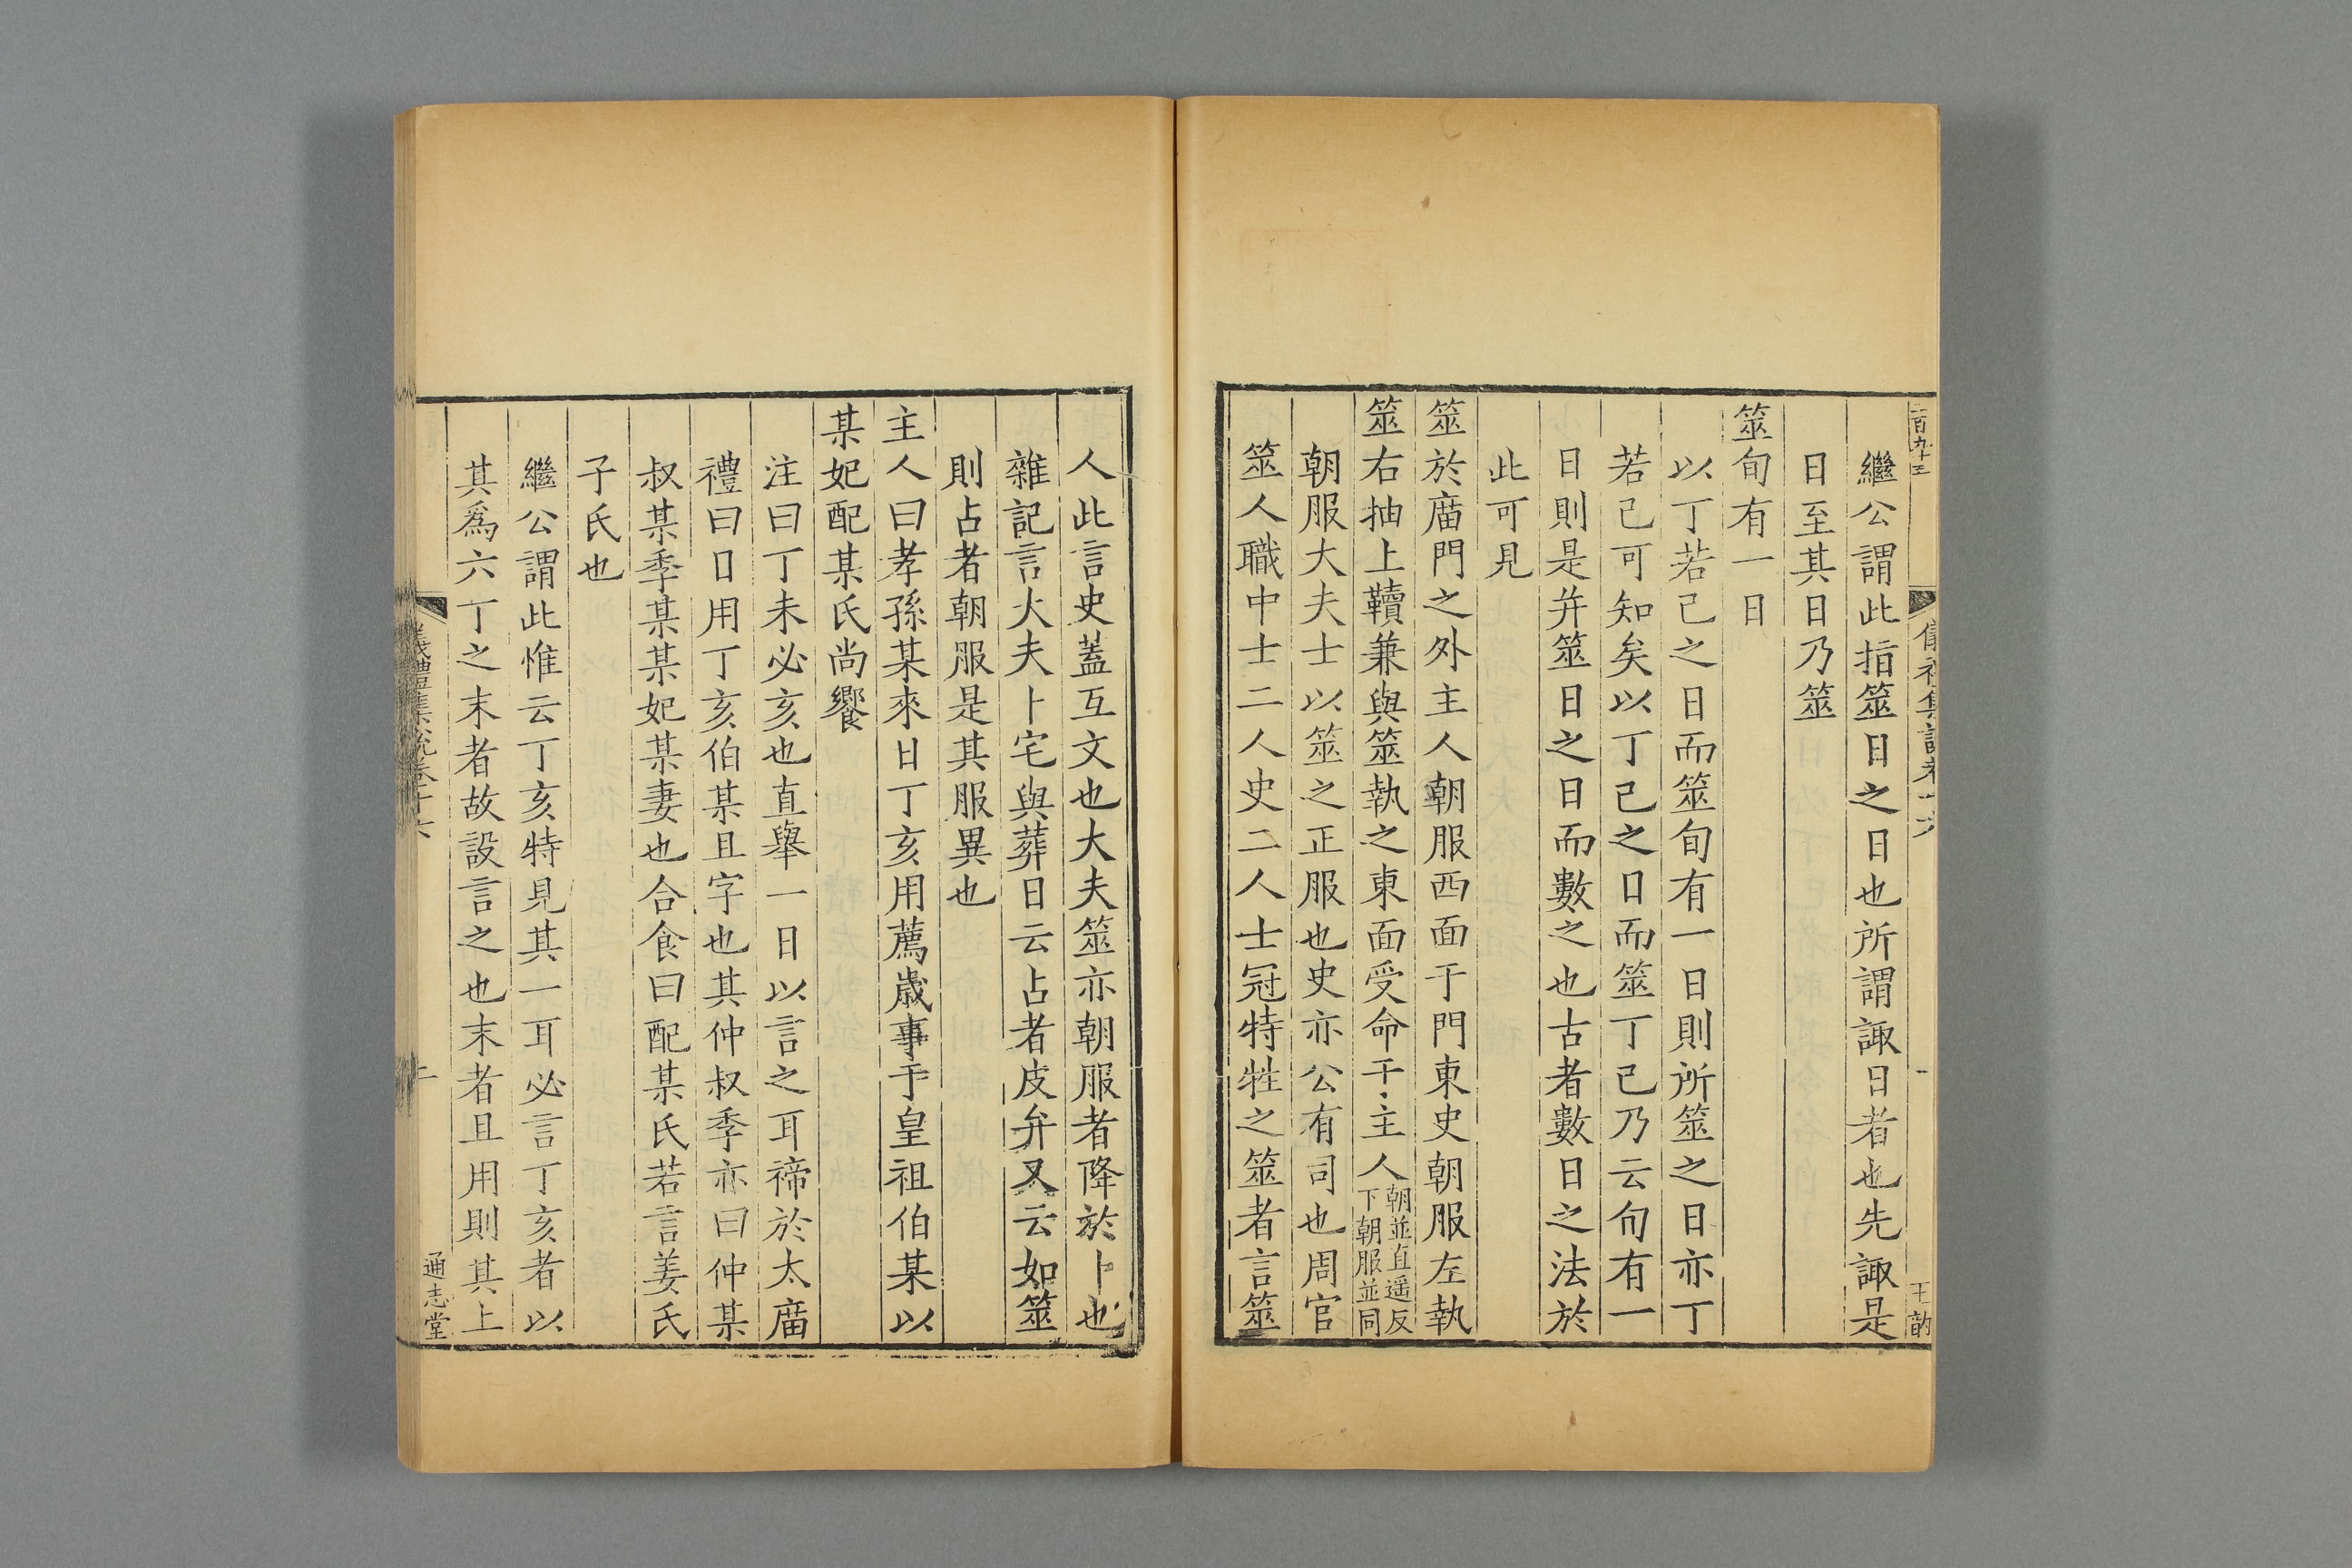 二百九十三
儀禮集說卷十六
一
王韵
繼公謂此指筮日之日也所謂諏日者也先諏是
日至其日乃筮
筮旬有一日
以丁若己之日而筮旬有一日則所筮之日亦丁
若己可知矣以丁己之日而筮丁己乃云旬有一
日則是并筮日之日而數之也古者數日之法於
此可見
筮於庿門之外主人朝服西面于門東史朝服左執
筮右抽上韇兼與筮執之東面受命于主人朝並直遥反下朝服並同
朝服大夫士以筮之正服也史亦公有司也周官
筮人職中士二人史二人士冠特牲之筮者言筮
人此言史蓋互文也大夫筮亦朝服者降於卜也
雜記言大夫卜宅與葬日云占者皮弁又云如筮
則占者朝服是其服異也
主人曰孝孫某來日丁亥用薦歲事于皇祖伯某以
某妃配某氏尚饗
注曰丁未必亥也直舉一日以言之耳禘於太庿
禮曰日用丁亥伯某且字也其仲叔季亦曰仲某
叔某季某某妃某妻也合食曰配某氏若言姜氏
子氏也
繼公謂此惟云丁亥特見其一耳必言丁亥者以
其爲六丁之末者故設言之也末者且用則其上
儀禮集說卷十六
通志堂